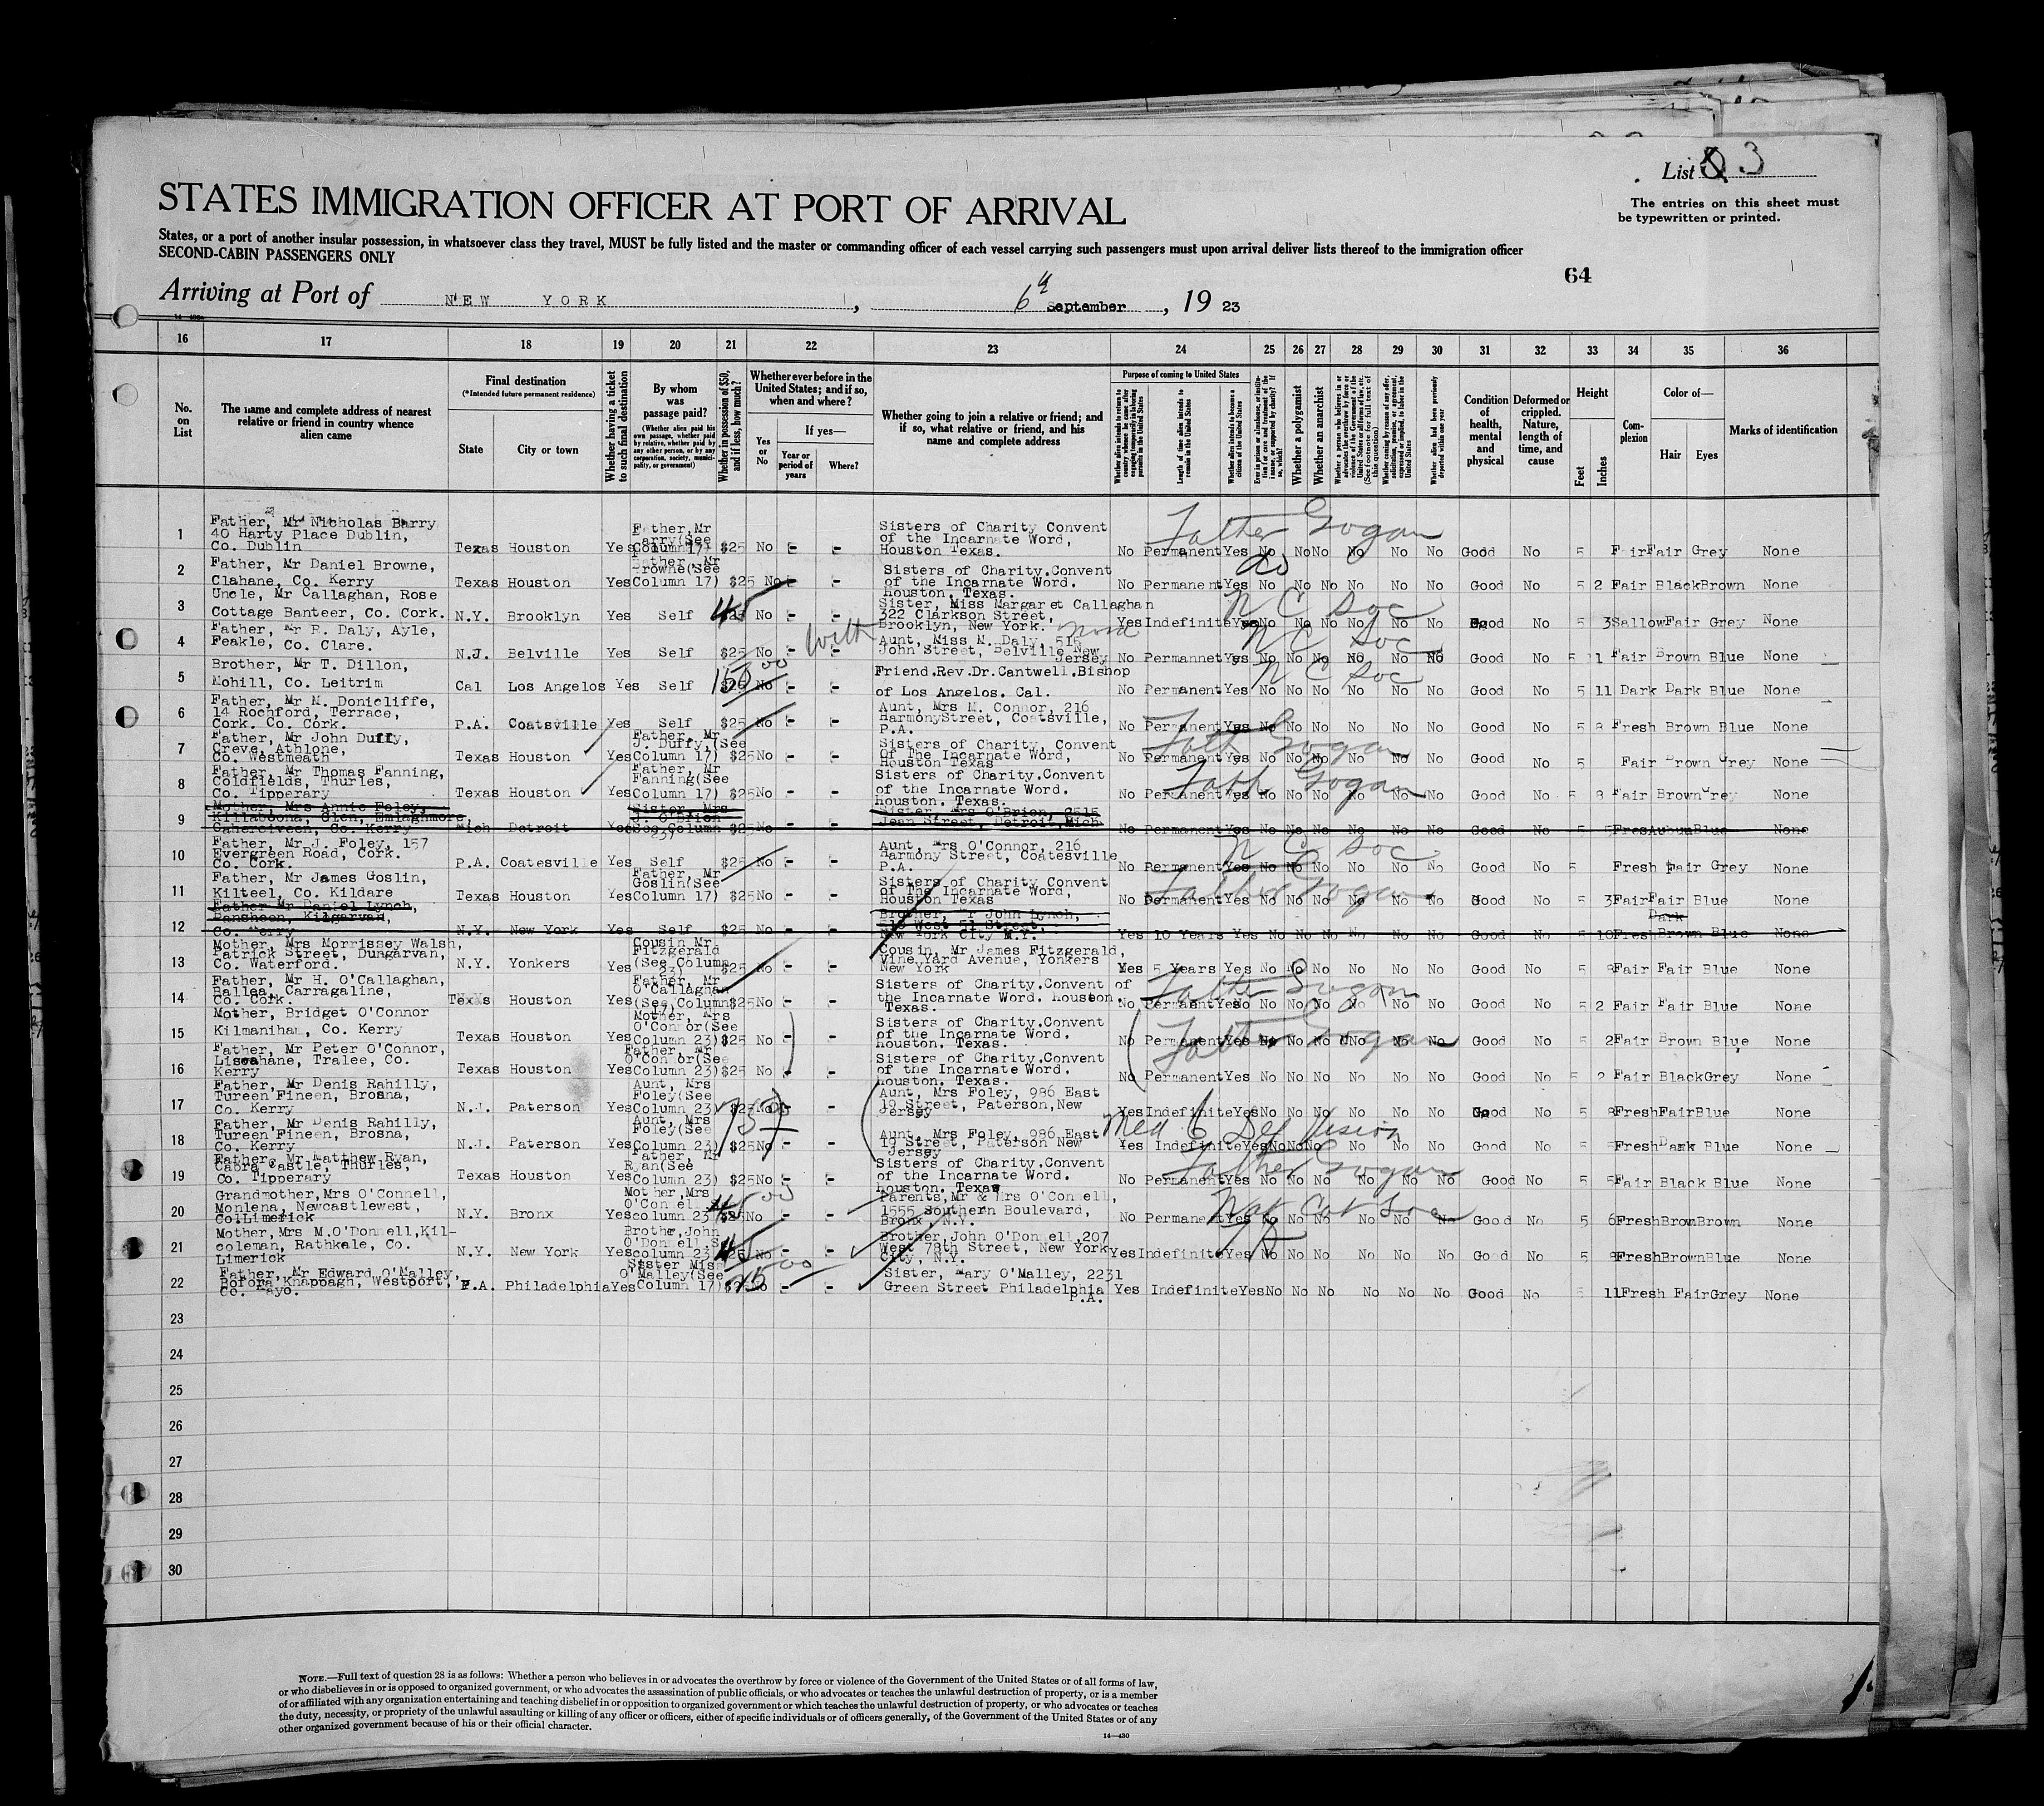 List 3
The entries on this sheet must
be typewritten or printed.
STATES IMMIGRATION OFFICER AT PORT OF ARRIVAL
States, or a port of another insular possession, in whatsoever class they travel, MUST be fully listed and the master or commanding officer of each vessel carrying such passengers must upon arrival deliver lists thereof to the immigration officer
SECOND-CABIN PASSENGERS ONLY
64
Arriving at Port of NEW YORK, 6th September, 19 23
16 17 18 19 20 21 22 23 24 25 26 27 28 29 30 31 32 33 34 35 36
No. on List
The name and complete address of nearest relative or friend in country whence alien came
Final destination
(*Intended future permanent residence)
State
City or town
Whether having a ticket to such final destination
By whom was passage paid?
(Whether alien paid his own passage, whether paid by relative, whether paid by any other person, or by any corporation, society, municipality, or government)
Whether in possession of $50, and if less, how much?
Whether ever before in the United States; and if so, when and where?
Yes or No
If yes—
Year or period of years
Where?
Whether going to join a relative or friend; and if so, what relative or friend, and his name and complete address
Purpose of coming to United States
Length of time alien intends to remain in the United States
Whether alien intends to become a citizen of the United States
Whether a polygamist
Whether an anarchist
Condition of health, mental and physical
Deformed or crippled. Nature, length of time, and cause
Height
Feet
Inches
Complexion
Color of—
Hair
Eyes
Marks of identification
1 Father, Mr Nicholas Barry 40 Harty Place Dublin, Co. Dublin Texas Houston Yes Father, Mr Barry(See Column 17) $25 No - - Sisters of Charity Convent of the Incarnate Word, Houston Texas. No Permanent Yes No No No No No No Good No 5 Fair Fair Grey None
Father Gogan
2 Father, Mr Daniel Browne, Clahane, Co. Kerry Texas Houston Yes Father, Mr Browne(See Column 17) $25 No - - Sisters of Charity.Convent of the Incarnate Word. Houston, Texas. No Permanent Yes No No No No No No Good No 5 2 Fair Black Brown None
do
3 Uncle, Mr Callaghan, Rose Cottage Banteer, Co. Cork. N.Y. Brooklyn Yes Self 45 $25 No - - Sister, Miss Margaret Callaghan 322 Clarkson Street, Brooklyn, New York. Yes Indefinite Yes No No No No No No Good No 5 3 Sallow Fair Grey None
N C Soc
4 Father, Mr P. Daly, Ayle, Feakle, Co. Clare. N.J. Belville Yes Self $25 No - - Aunt, Miss M. Daly, 516 John Street, Belville New Jersey No Permannet Yes No No No No No No Good No 5 11 Fair Brown Blue None
N C Soc
5 Brother, Mr T. Dillon, Mohill, Co. Leitrim Cal Los Angelos Yes Self 150 00 $25 No - - Friend.Rev.Dr.Cantwell.Bishop of Los Angelos. Cal. No Permanent Yes No No No No No No Good No 5 11 Dark Dark Blue None
N C Soc
6 Father, Mr M. Donicliffe, 14 Rochford, Terrace, Cork. Co. Cork. P.A. Coatsville Yes Self $25 No - - Aunt, Mrs M. Connor, 216 HarmonyStreet, Coatsville, P.A. No Permanent Yes No No No No No No Good No 5 8 Fresh Brown Blue None
7 Father, Mr John Duffy, Creve, Athlone, Co. Westmeath Texas Houston Yes Father, Mr J. Duffy,(See Column 17) $25 No - - Sisters of Charity, Convent Of The Incarnate Word, Houston Texas No Permanent Yes No No No No No No Good No 5 Fair Brown Grey None
Fath Gogan
8 Father, Mr Thomas Fanning, Coldfields, Thurles, Co. Tipperary Texas Houston Yes Father, Mr Fanning(See Column 17) $25 No - - Sisters of Charity.Convent of the Incarnate Word. Houston. Texas. No Permanent Yes No No No No No No Good No 5 8 Fair Brown Grey None
Fath Gogan
9 Mother, Mrs Annie Foley, Killaboona, Glen, Emlaghmore, Caherciveen, Co. Kerry Mich Detroit Yes Sister, Mrs J. O'Brien See Column 23) $25 No Sister, Mrs O'Brien, Jean Street, Detroit, Mich No Permanent Yes No No No No No No Good No 5 5 Fres Auburn Blue None
10 Father, Mr J. Foley, 157 Evergreen Road, Cork. Co. Cork. P.A. Coatesville Yes Self $25 No - - Aunt, Mrs O'Connor, 216 Harmony Street, Coatesville P.A. No Permanent Yes No No No No No No Good No 5 Fresh Fair Grey None
N C Soc
11 Father, Mr James Goslin, Kilteel, Co. Kildare Texas Houston Yes Father, Mr Goslin(See Column 17) $25 No - - Sisters of Charity Convent of The Incarnate Word, Houston Texas No Permanent Yes No No No No No No Good No 5 3 Fair Fair Blue None
Father Gogan
12 Father Mr Daniel Lynch, Bansheen, Kilgarvan, Co. Kerry N.Y. New York Yes Self $25 No - - Brother, Mr John Lynch, West 51 Street, New York City N.Y. Yes 10 Years Yes No No No No No No Good No 5 10 Fres Dark Brown Blue None
13 Mother, Mrs Morrissey Walsh, Patrick Street, Dungarvan, Co. Waterford. N.Y. Yonkers Yes Cousin Mr Fitzgerald (See Column 23) $25 No - - Cousin, Mr James Fitzgerald, Vine Yard Avenue, Yonkers New York Yes 5 Years Yes No No No No No No Good No 5 8 Fair Fair Blue None
14 Father, Mr H. O'Callaghan, Ballea, Carragaline, Co. Cork. Texas Houston Yes Father, Mr O'Callaghan (See Column 17) $25 No - - Sisters of Charity.Convent of the Incarnate Word. Houston. Texas. No Permaent Yes No No No No No No Good No 5 2 Fair Fair Blue None
Father Gogan
15 Mother, Bridget O'Connor Kilmaniham, Co. Kerry Texas Houston Yes Mother, Mrs O'Connor(See Column 23) $25 No - - Sisters of Charity.Convent of the Incarnate Word. Houston, Texas. No Permanent Yes No No No No No No Good No 5 2 Fair Brown Blue None
Father Gogan
16 Father, Mr Peter O'Connor, Liscahane, Tralee, Co. Kerry Texas Houston Yes Father, Mr O'Connor(See Column 23) $25 No - - Sisters of Charity.Convent of the Incarnate Word. Houston. Texas. No Permanent Yes No No No No No No Good No 5 2 Fair Black Grey None
17 Father, Mr Denis Rahilly, Tureen Fineen, Brosna, Co. Kerry N.J. Paterson Yes Aunt, Mrs Foley(See Column 23) $25 No - - Aunt, Mrs Foley, 986 East 19 Street, Paterson, New Jersey Yes Indefinite Yes No No No No No No Good No 5 8 Fresh Fair Blue None
18 Father, Mr Denis Rahilly, Tureen Fineen, Brosna, Co. Kerry N.J. Paterson Yes Aunt, Mrs Foley(See Column 23) $25 No - - Aunt, Mrs Foley, 986 East 19 Street, Paterson New Jersey Yes Indefinite Yes No No No No No No Good No 5 5 Fresh Dark Blue None
Def Vision
19 Father, Mr Matthew Ryan, Cabra Castle, Thurles, Co. Tipperary Texas Houston Yes Father, Mr Ryan(See Column 23) $25 No - - Sisters of Charity.Convent of the Incarnate Word. Houston. Texas No Permanent Yes No No No No No No Good No 5 5 Fair Black Blue None
Father Gogan
20 Grandmother,Mrs O'Connell, Monlena, Newcastlewest, Co.Limerick N.Y. Bronx Yes Mother,Mrs O'Connell S column 23 45 00 $25 No - - Parents, Mr & Mrs O'Connell, 1555 Southern Boulevard, Bronx, N.Y. No Permanent Yes No No No No No No Good No 5 6 Fresh Brown Brown None
Nat Cat Soc
21 Mother, Mrs M.O'Donnell,Kilcoleman, Rathkale, Co. Limerick N.Y. New York Yes Brother,John O'Donnell S column 23 45 $25 No - - Brother, John O'Donnell,207 West 78th Street, New York City, N.Y. Yes Indefinite Yes No No No No No No Good No 5 8 Fresh Brown Blue None
22 Father, Mr Edward O'Malley, Bofora, Knappagh, Westport, Co. Mayo. P.A. Philadelphia Yes Sister Miss O'Malley(See Column 17) $25 No - - Sister, Mary O'Malley, 2231 Green Street Philadelphia P.A. Yes Indefinite Yes No No No No No No Good No 5 11 Fresh Fair Grey None
23
24
25
26
27
28
29
30
NOTE.—Full text of question 28 is as follows: Whether a person who believes in or advocates the overthrow by force or violence of the Government of the United States or of all forms of law,
or who disbelieves in or is opposed to organized government, or who advocates the assassination of public officials, or who advocates or teaches the unlawful destruction of property, or is a member
of or affiliated with any organization entertaining and teaching disbelief in or opposition to organized government or which teaches the unlawful destruction of property, or who advocates or teaches
the duty, necessity, or propriety of the unlawful assaulting or killing of any officer or officers, either of specific individuals or of officers generally, of the Government of the United States or of any
other organized government because of his or their official character.
14—430